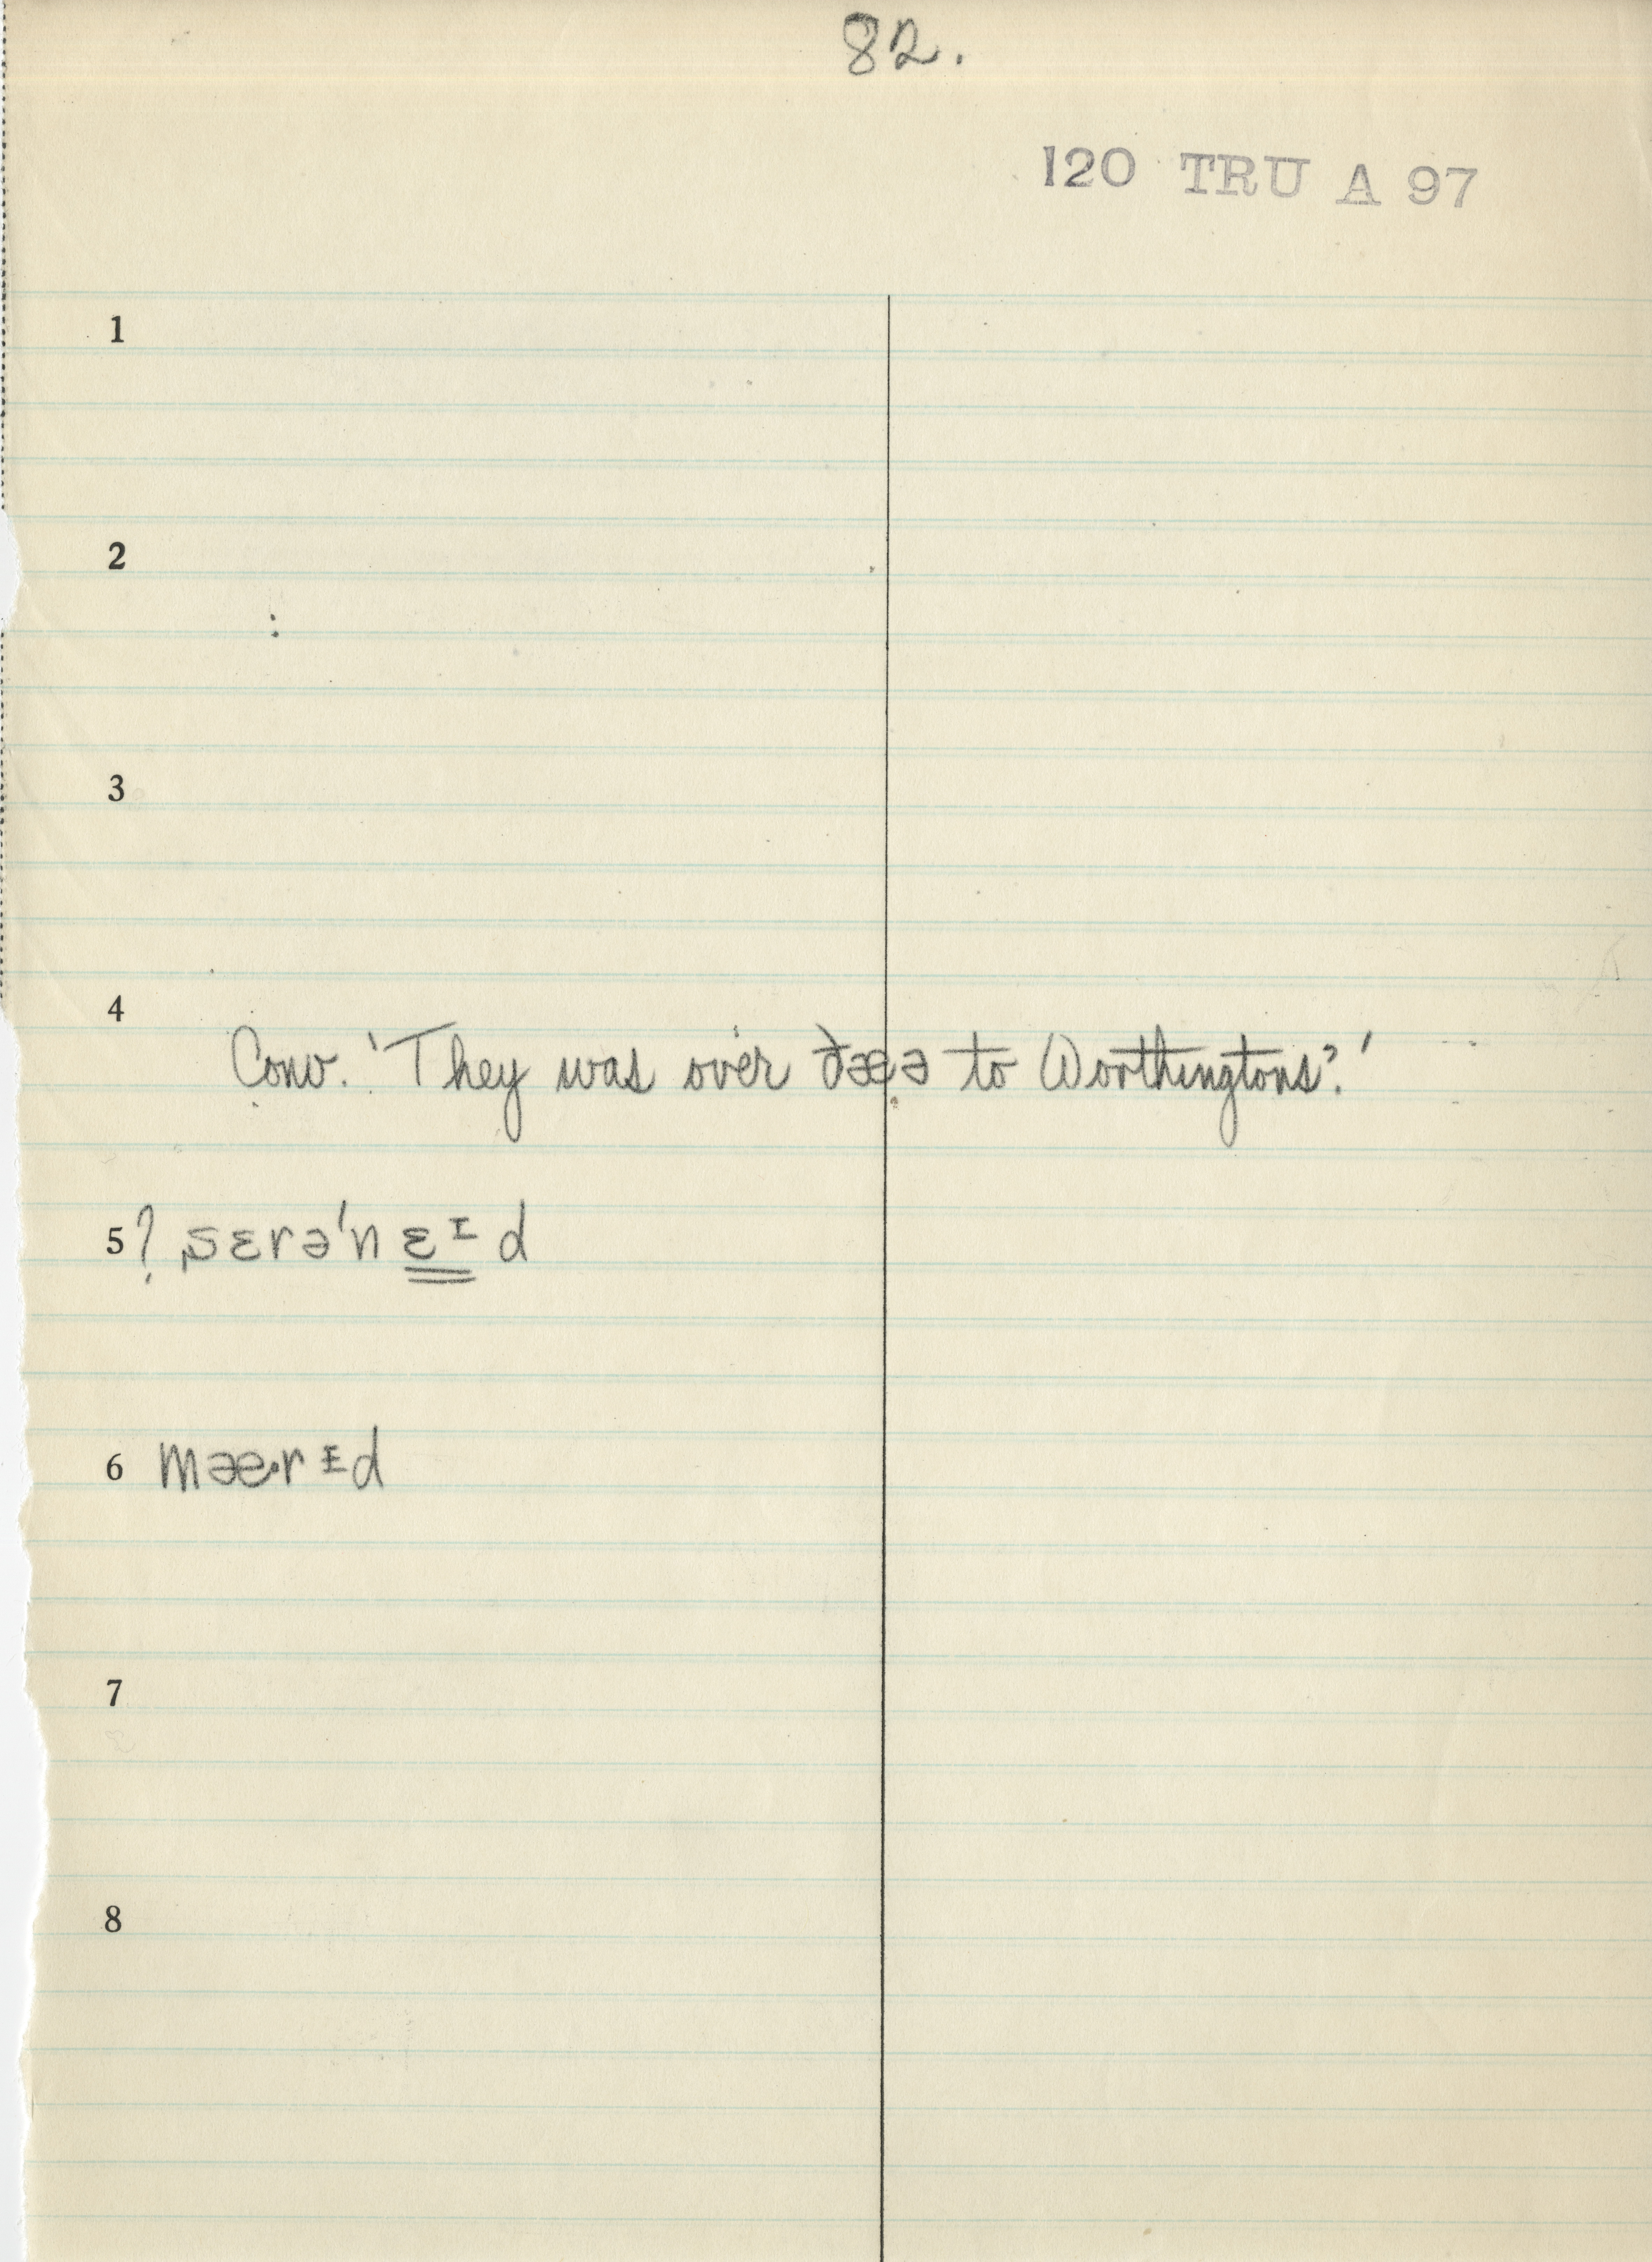 82.
120 TRU A 97
1
2
:
3
4
Conv. 'They was over ðæə to Worthingtons?'
5 ? sɛrə'nɛᶦd
6 mæ·rɪd
7
8